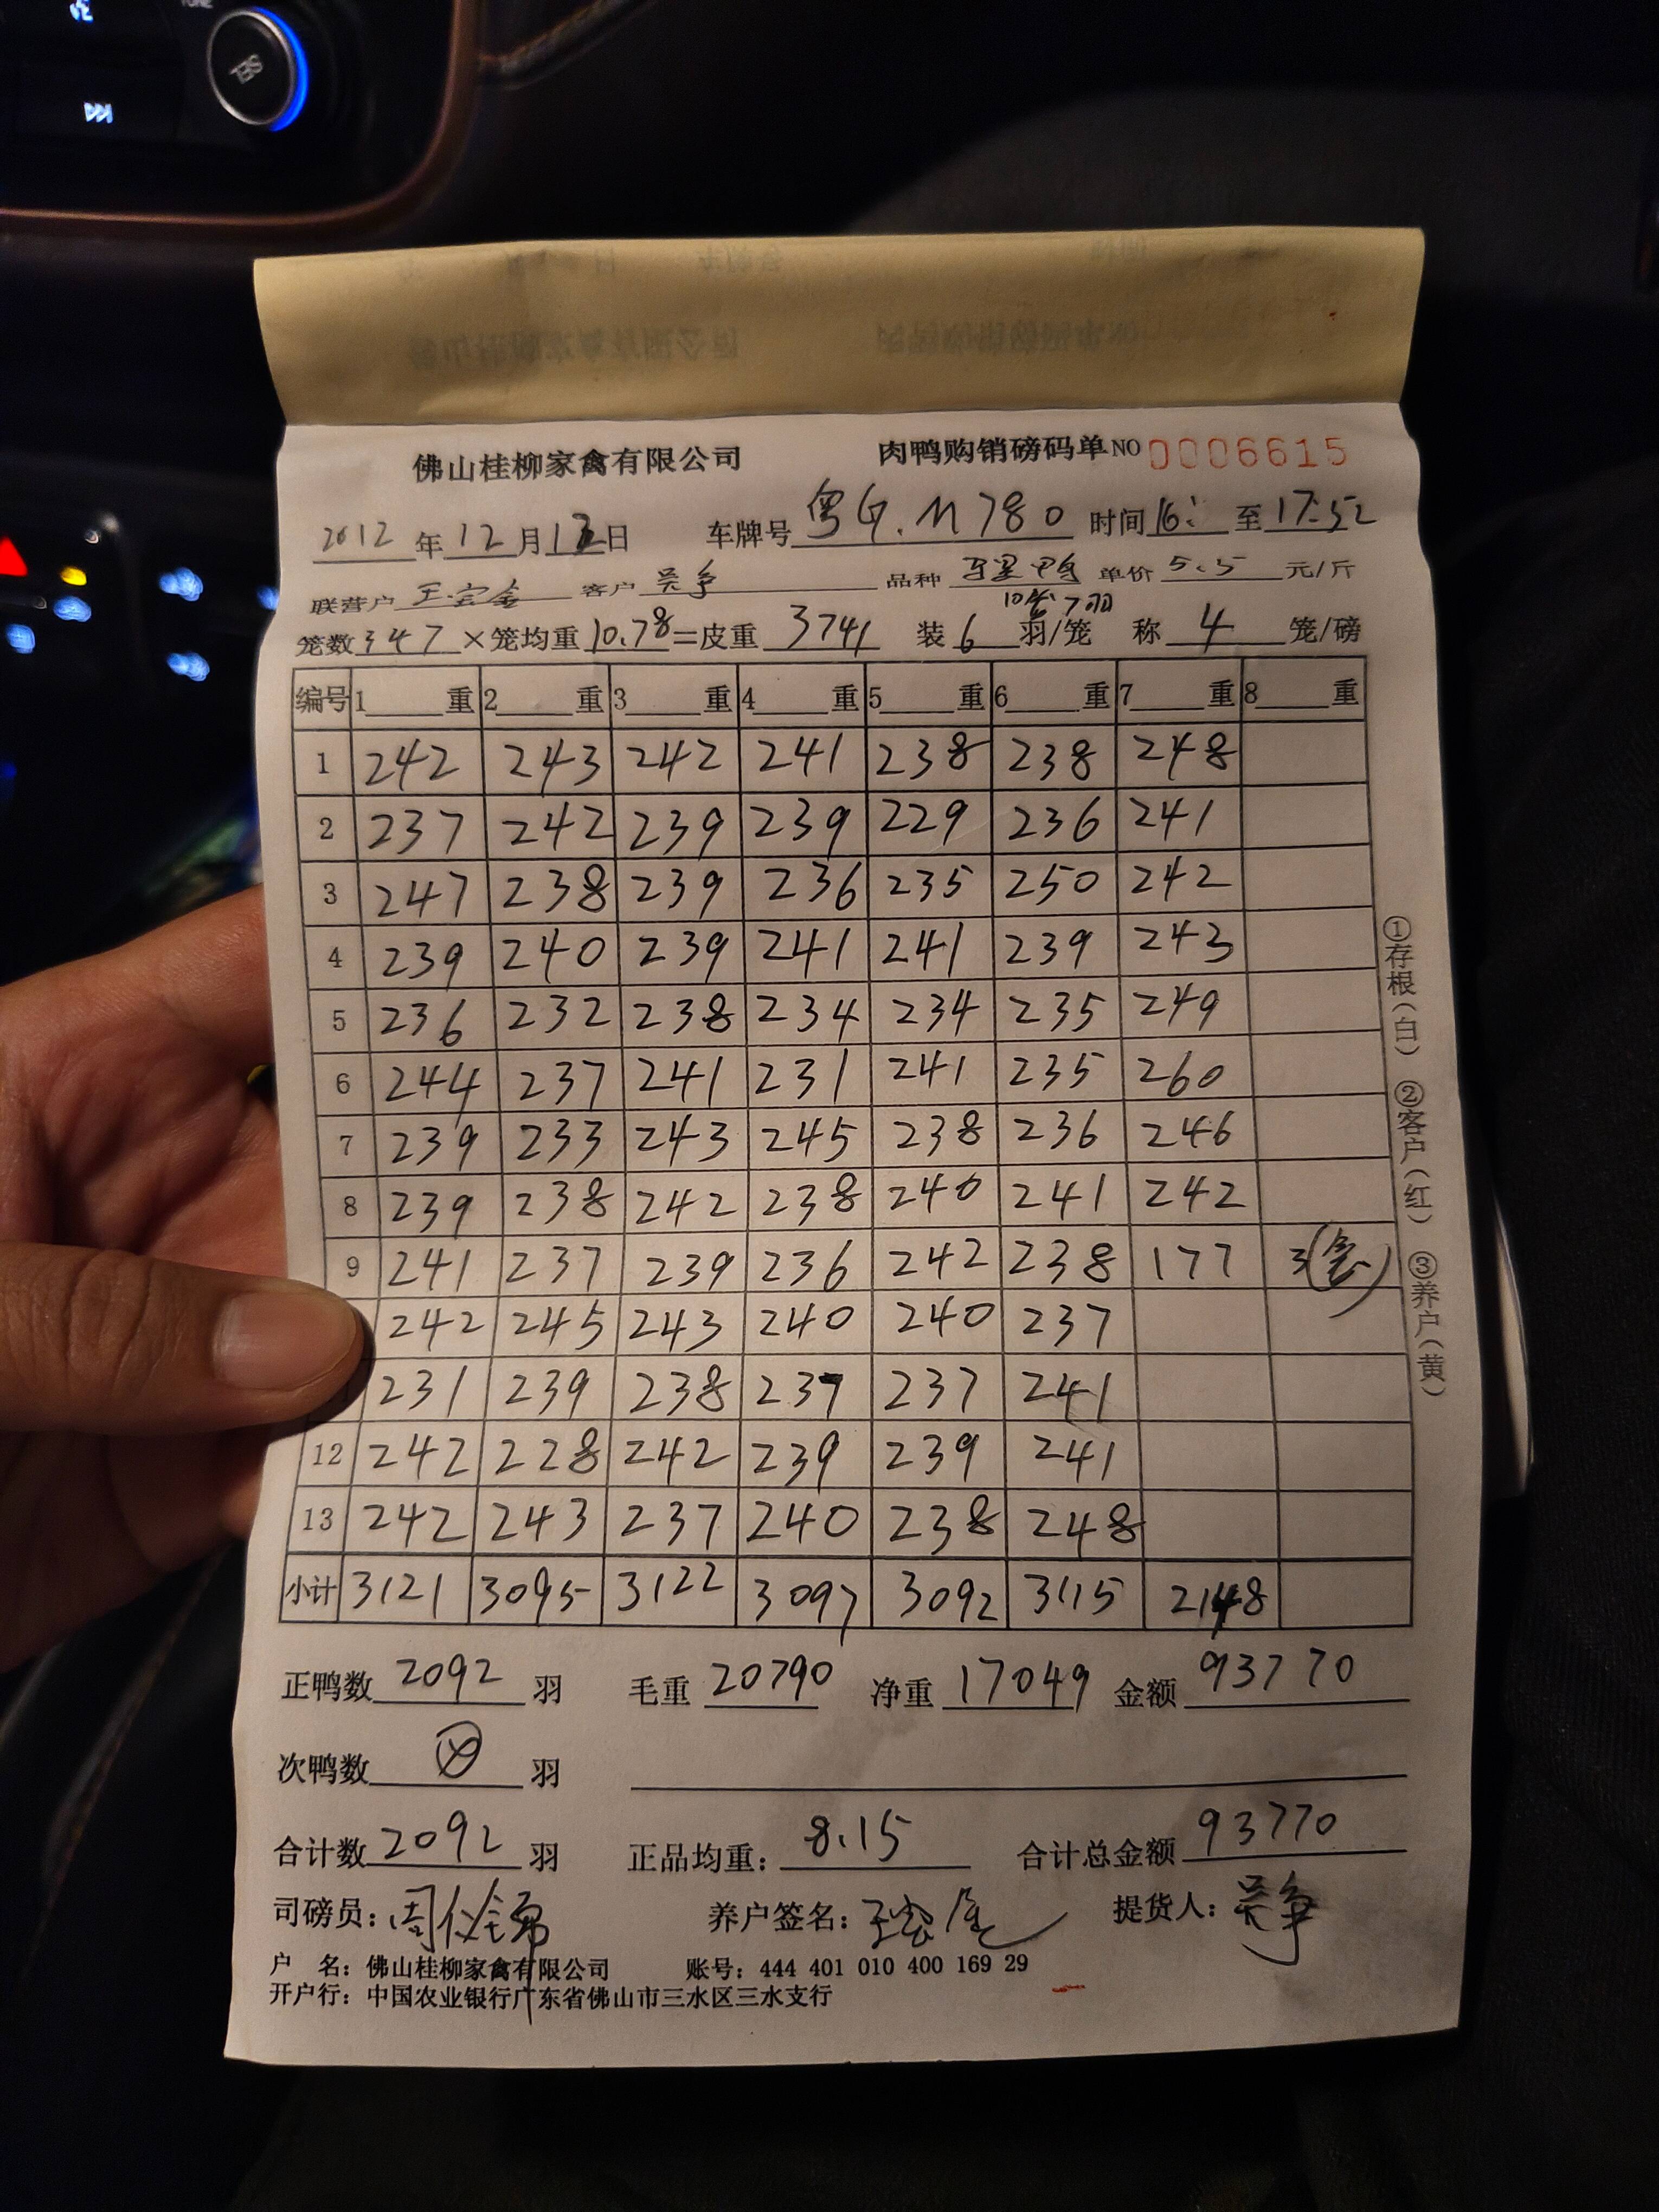 SEL
佛山桂柳家禽有限公司 肉鸭购销磅码单 NO 0006615
2012年12月13日 车牌号 粤G.M780 时间16: 至17:52
联营户 客户 吴争 品种 鸭 单价 5.5 元/斤
10笼7羽
笼数347×笼均重10.78=皮重3741 装6羽/笼 称4笼/磅
编号 1 重 2 重 3 重 4 重 5 重 6 重 7 重 8 重
1 242 243 242 241 238 238 248
2 237 242 239 239 229 236 241
3 247 238 239 236 235 250 242
4 239 240 239 241 241 239 243
5 236 232 238 234 234 235 249
6 244 237 241 231 241 235 260
7 239 233 243 245 238 236 246
8 239 238 242 238 240 241 242
9 241 237 239 236 242 238 177 3(笼)
242 245 243 240 240 237
231 239 238 237 237 241
12 242 228 242 239 239 241
13 242 243 237 240 238 248
小计 3121 3095 3122 3097 3092 3115 2148
①存根(白) ②客户(红) ③养户(黄)
正鸭数 2092 羽 毛重 20790 净重 17049 金额 93770
次鸭数 羽
合计数 2092 羽 正品均重: 8.15 合计总金额 93770
司磅员: 养户签名: 提货人: 吴争
户 名: 佛山桂柳家禽有限公司 账号: 444 401 010 400 169 29
开户行: 中国农业银行广东省佛山市三水区三水支行